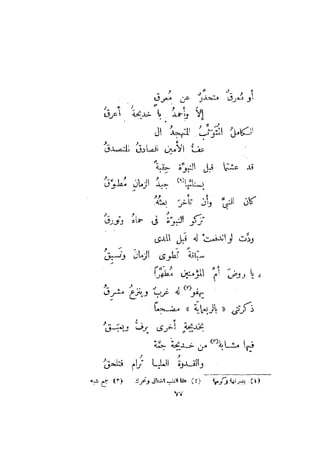 أو مُعرقٌ متحدّرٌ عن مُعرقٍ
إلاّ وأحمدُ يا خديجةُ أعرقُ
الكاملُ المتهجدُ ال
عفُّ الأمينُ الصادقُ المتصدقُ
قد عشتِها قبل النبوّة حِقبةً
بسنائها(١) جيدُ الزمانِ مطوّقُ
كان النبيَّ وأن تأخرَ بعثُهُ
تزكو النبوّةُ فى حماهُ وتورقُ
ودّت لو اندفعتْ له قبل المدى
سبّاقةً تطوى الزمانَ وتسبقُ
يا روضَ أمِّ المؤمنين مُطهَّرًا
يهفو(٢) له غربٌ وينزعُ مشرقُ
ذكرتنى « بالربعاية » مضجعًا
بخديجةٍ أخرى يرفُّ ويعبقُ
فيها مشابهُ(٣) من خديجةَ جمّةٌ
والقدوةُ العليا تُرام فتلحقُ
(١) بقدرتها وكرمها (٢) هفا القلب اشتاق وتحرك (٣) جمع شبه
٧٧